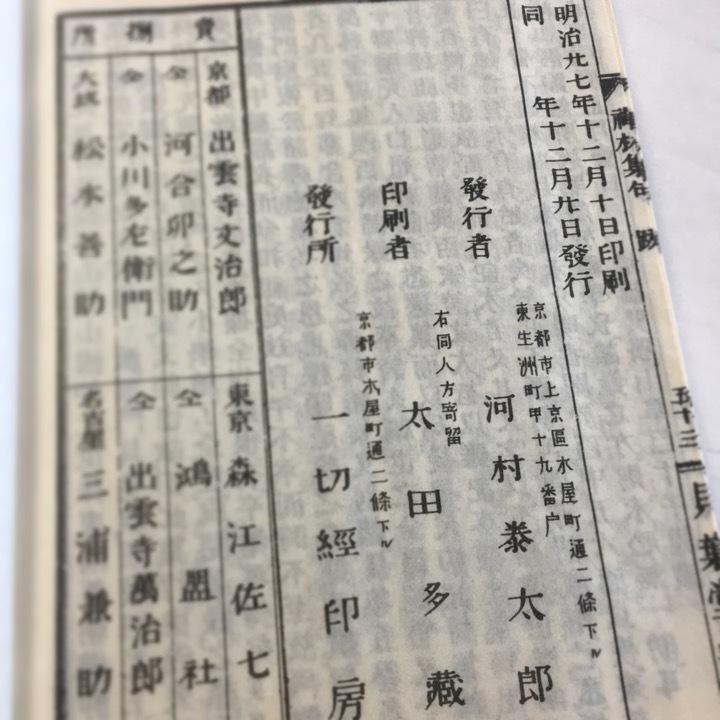 禅林集句 跋
五十三
貝葉
明治廿七年十二月十日印刷
同 年十二月廿日發行
京都市上京區木屋町通二條下ル
東生洲町甲十九番戸
發行者 河村泰太郎
右同人方寄留
印刷者 太田多藏
京都市木屋町通二條下ル
發行所 一切經印房
賣捌所
京都 出雲寺文治郎
仝 河合卯之助
仝 小川多左衛門
大阪 松本善助
東京 森江佐七
仝 鴻盟社
仝 出雲寺萬治郎
名古屋 三浦兼助